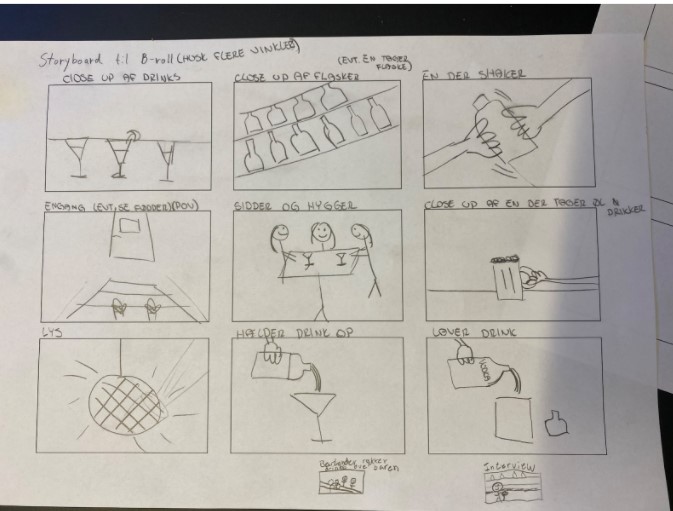 Storyboard til B-roll (HUSK FLERE VINKLER)
CLOSE UP AF DRINKS
CLOSE UP AF FLASKER
(EVT. EN TAGER
FLASKE)
EN DER SHAKER
INGANG (EVT. SE FØDDER) (POV)
SIDDER OG HYGGER
CLOSE UP AF EN DER TAGER ØL &
DRIKKER
LYS
HÆLDER DRINK OP
LAVER DRINK
VODKA
Bartender rykker
drinks over baren
Interview